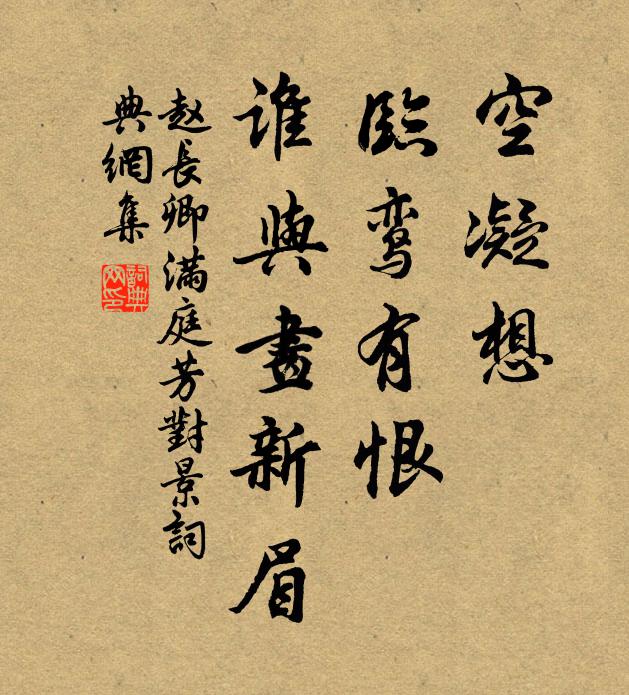 空凝想
臨鸾有恨
誰與畫新眉
赵長卿满庭芳對景詞
典網集
詞典网印